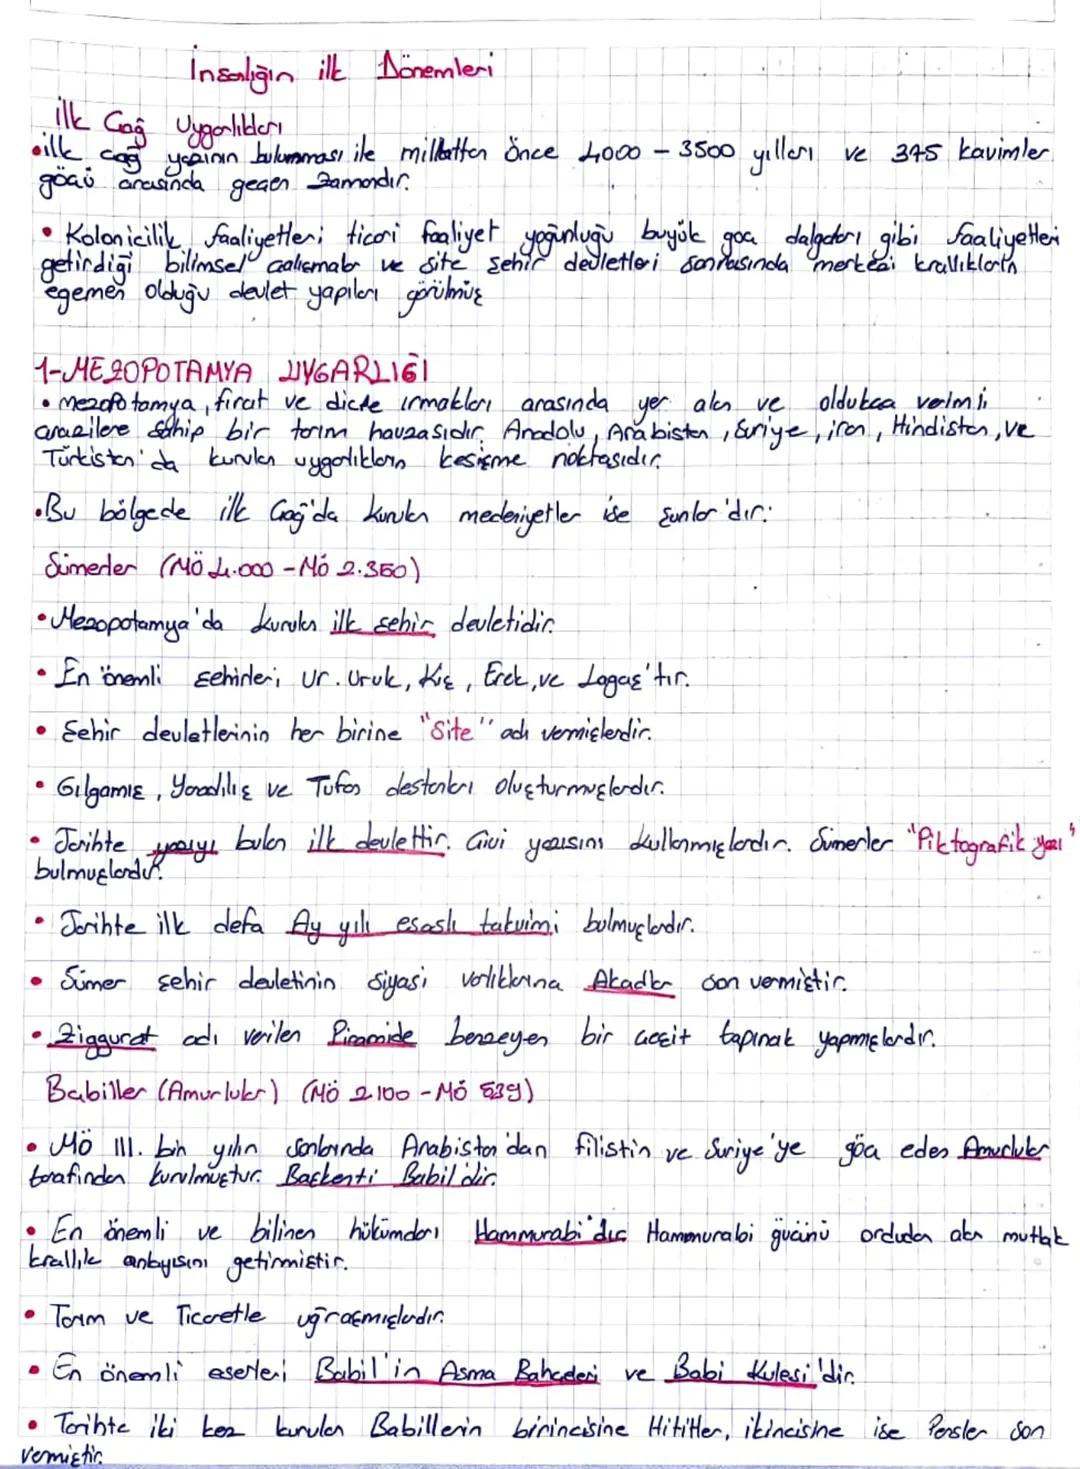 İnsalığın ilk Dönemleri
İlk Çağ Uygarlıkları
•ilk çağ yazının bulunması ile millattan önce 4000 - 3500 yılları ve 375 kavimler
göçü arasında geçen zamandır.
• Kolonicilik faaliyetleri ticari faaliyet yoğunluğu büyük göç dalgaları gibi faaliyetleri
getirdiği bilimsel çalışmalar ve site şehir devletleri sonrasında merkezi krallıkların
egemen olduğu devlet yapıları görülmüş
1-MEZOPOTAMYA UYGARLIĞI
• mezopotamya, fırat ve dicle ırmakları arasında yer alan ve oldukça verimli
arazilere sahip bir tarım havzasıdır. Anadolu, Arabistan, Suriye, iran, Hindistan, ve
Türkistan'da kurulan uygarlıkların kesişme noktasıdır.
•Bu bölgede ilk Çağ'da kurulan medeniyetler ise şunlar'dır:
Sümerler (MÖ 4.000 - MÖ 2.350)
• Mezopotamya'da kurulan ilk şehir devletidir.
• En önemli şehirleri Ur. Uruk, Kiş, Erek, ve Lagaş'tır.
• Şehir devletlerinin her birine "Site" adı vermişlerdir.
• Gılgamış, Yaradılış ve Tufan destanları oluşturmuşlardır.
• Tarihte yazıyı bulan ilk devlettir. Çivi yazısını kullanmışlardır. Sümerler "Piktografik yazı"
bulmuşlardır.
• Tarihte ilk defa Ay yılı esaslı takvimi bulmuşlardır.
• Sümer şehir devletinin siyasi varlıklarına Akadlar son vermiştir.
• Ziggurat adı verilen Piramide benzeyen bir çeşit tapınak yapmışlardır.
Babiller (Amurlular) (MÖ 2100 - MÖ 539)
• MÖ III. bin yılın sonlarında Arabistan'dan filistin ve Suriye'ye göç eden Amurlular
tarafından kurulmuştur. Başkenti Babil'dir.
• En önemli ve bilinen hükümdarı Hammurabi'dir. Hammurabi gücünü ordudan alan mutlak
krallık anlayışını getirmiştir.
• Tarım ve Ticaretle uğraşmışlardır.
• En önemli eserleri Babil'in Asma Bahçeleri ve Babi Kulesi'dir.
• Tarihte iki kez kurulan Babillerin birincisine Hititler, ikincisine ise Persler son
vermiştir.